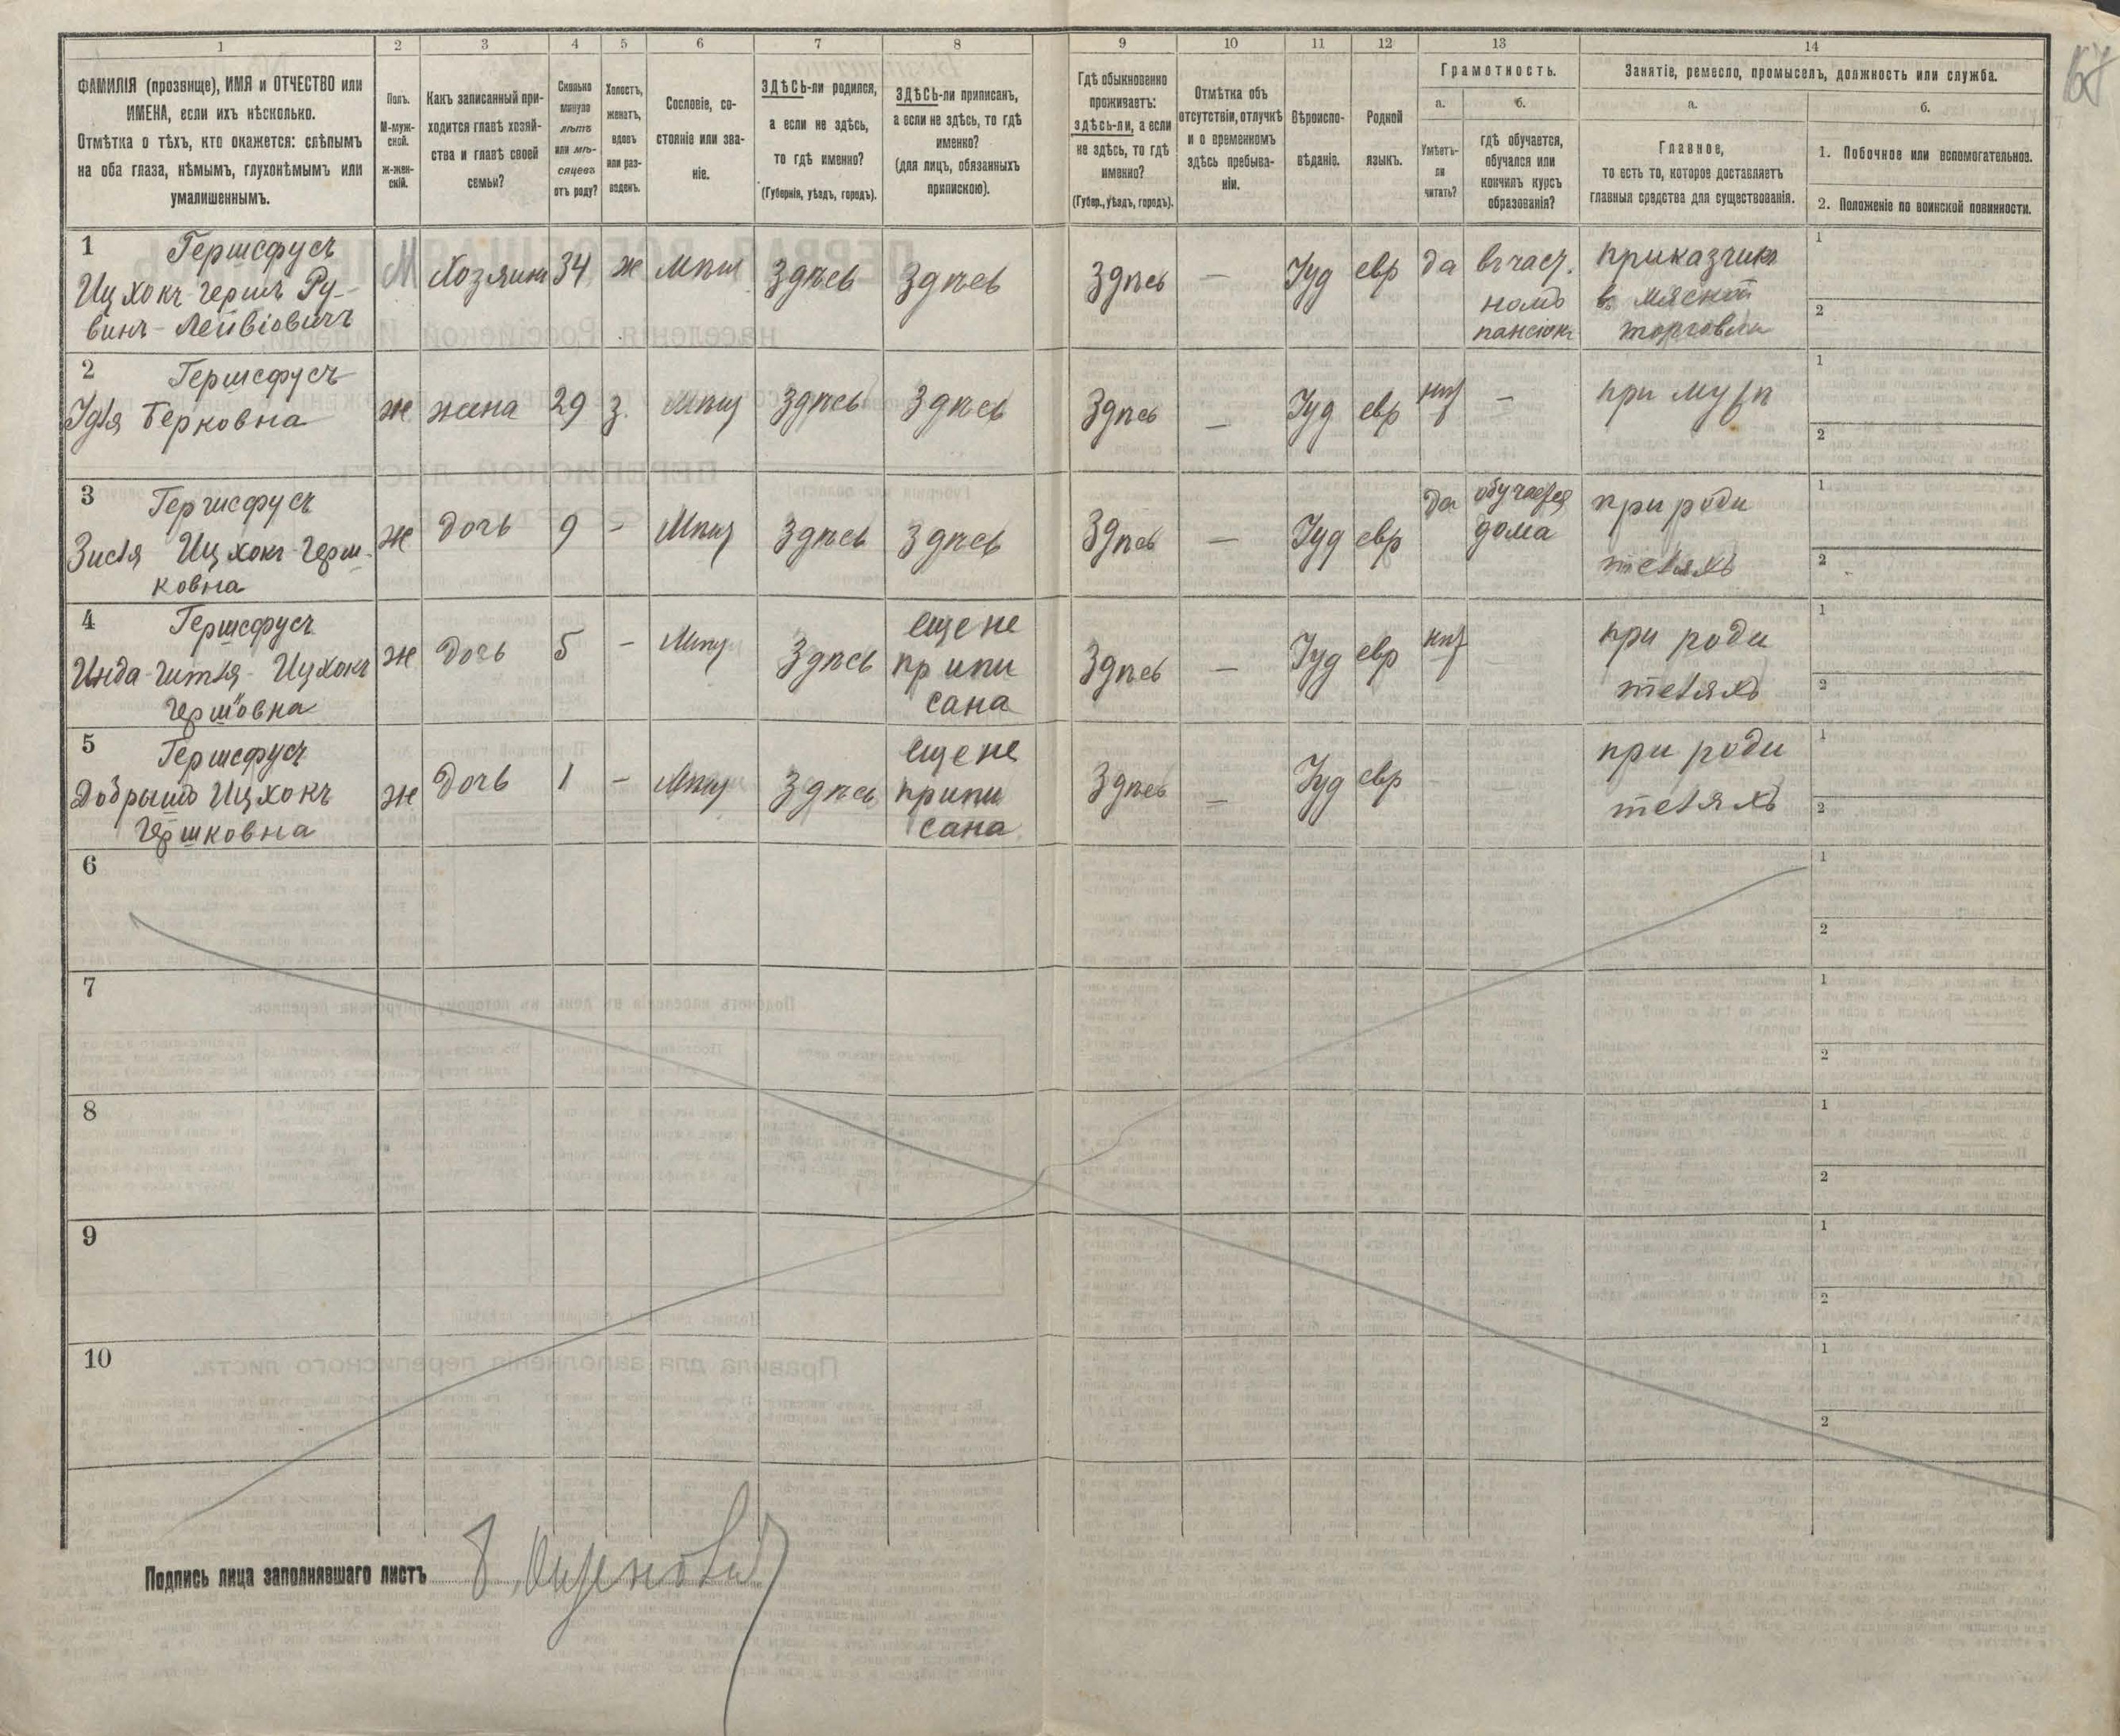 1 2 3 4 5 6 7 8 9 10 11 12 13 14
ФАМИЛІЯ (прозвище), ИМЯ и ОТЧЕСТВО или
ИМЕНА, если ихъ нѣсколько.
Отмѣтка о тѣхъ, кто окажется: слѣпымъ
на оба глаза, нѣмымъ, глухонѣмымъ или
умалишеннымъ.
Полъ.
М-муж-
ской.
ж-жен-
скій.
Какъ записанный при-
ходится главѣ хозяй-
ства и главѣ своей
семьи?
Сколько
минуло
лѣтъ
или мѣ-
сяцевъ
отъ роду?
Холостъ,
женатъ,
вдовъ
или раз-
веденъ.
Сословіе, со-
стояніе или зва-
ніе.
ЗДѢСЬ-ли родился,
а если не здѣсь,
то гдѣ именно?
(Губернія, уѣздъ, городъ).
ЗДѢСЬ-ли приписанъ,
а если не здѣсь, то гдѣ
именно?
(для лицъ, обязанныхъ
припискою).
Гдѣ обыкновенно
проживаетъ:
здѣсь-ли, а если
не здѣсь, то гдѣ
именно?
(Губер., уѣздъ, городъ).
Отмѣтка объ
отсутствіи, отлучкѣ
и о временномъ
здѣсь пребыва-
ніи.
Вѣроиспо-
вѣданіе.
Родной
языкъ.
Грамотность.
а.
Умѣетъ-
ли
читать?
б.
гдѣ обучается,
обучался или
кончилъ курсъ
образованія?
Занятіе, ремесло, промыселъ, должность или служба.
а.
Главное,
то есть то, которое доставляетъ
главныя средства для существованія.
б.
1. Побочное или вспомогательное.
2. Положеніе по воинской повинности.
1 Гершсфусъ
Ицхокъ-гершъ Ру-
винъ-Лейвіовичъ
М Хозяинъ 34 ж Мѣщ Здѣсь Здѣсь Здѣсь — Іуд евр да въ част.
номъ
пансіонѣ
приказчикъ
въ мясной
торговли
1
2
2 Гершсфусъ
Берковна
ж жена 29 з. Мѣщ Здѣсь Здѣсь Здѣсь — Іуд евр нѣт — при мужѣ
1
2
3 Гершсфусъ
Ицхокъ-Герш-
ковна
ж дочь 9 - Мѣщ Здѣсь Здѣсь Здѣсь — Іуд евр да обучается
дома
при роди
теляхъ
1
2
4 Гершсфусъ
Инда-гитля-Ицхокъ
гершовна
ж дочь 5 - Мѣщ Здѣсь еще не
припи
сана
Здѣсь — Іуд евр нѣт
при роди
теляхъ
1
2
5 Гершсфусъ
Добрышъ Ицхокъ
гершковна
ж дочь 1 - Мѣщ Здѣсь еще не
припи
сана
Здѣсь — Іуд евр -
при роди
теляхъ
1
2
6
1
2
7
1
2
8
1
2
9
1
2
10
1
2
Подпись лица заполнявшаго листъ